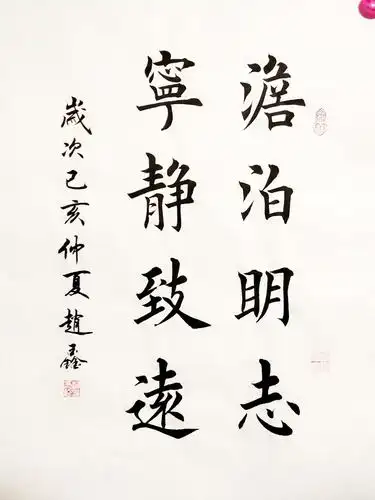 澹泊明志
寧静致遠
歲次己亥仲夏趙鑫